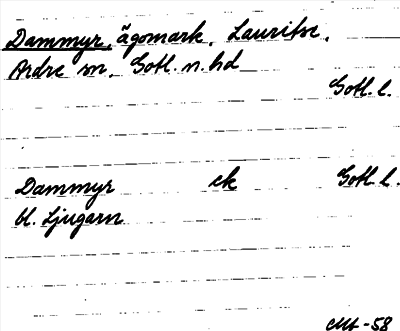 Dammyr, ägomark, Lauritse,
Ardre sn, Gotl. n. hd
Gotl. l.
Dammyr ek Gotl. l.
bl. Ljugarn
-58